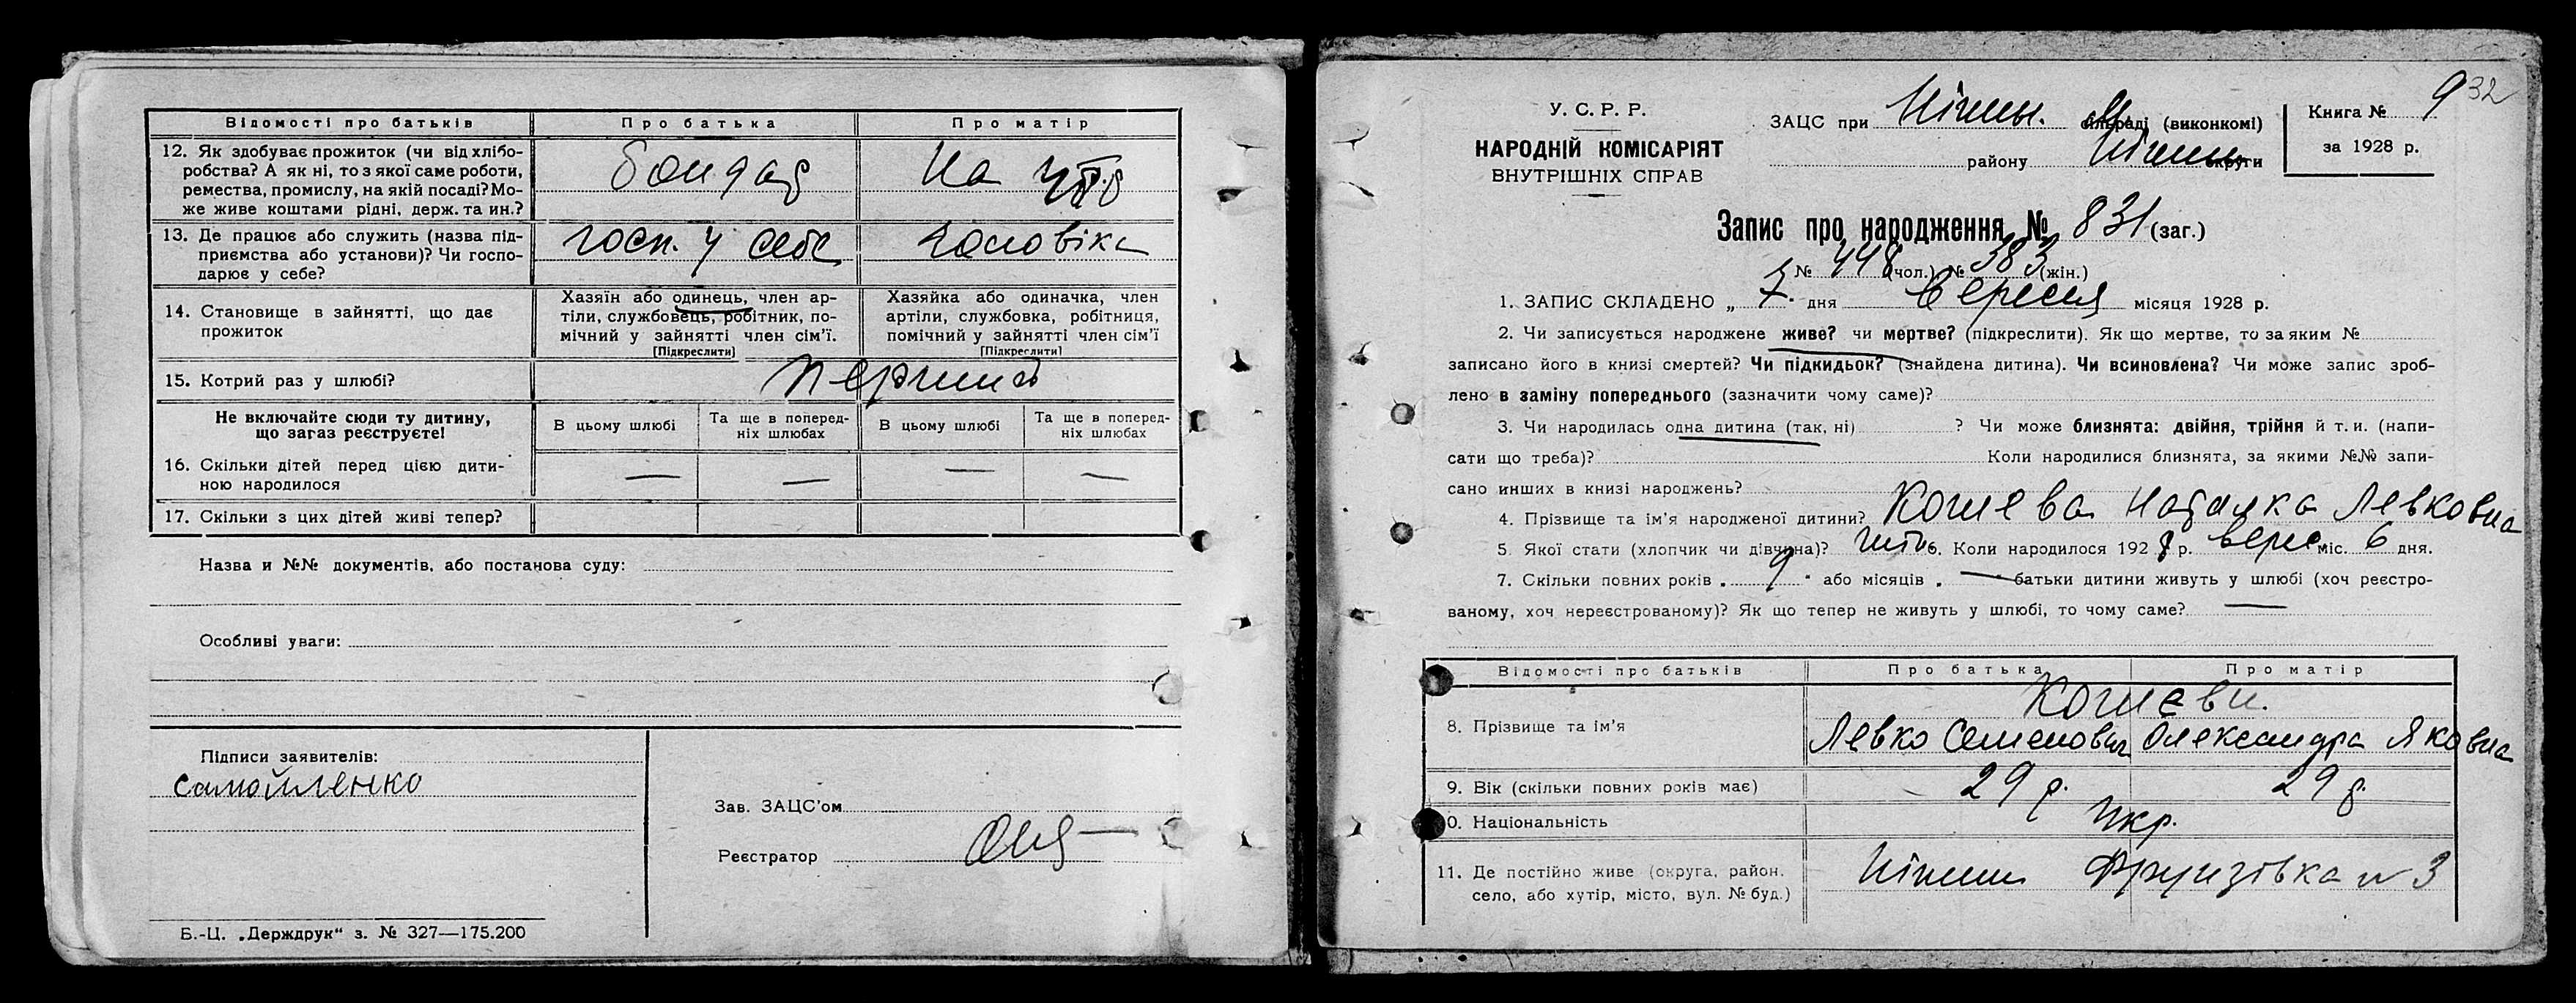 Відомості про батьків Про батька Про матір
12. Як здобуває прожиток (чи від хлібо- Бондар На ут.
робства? А як ні, то з якої саме роботи,
ремества, промислу, на якій посаді? Мо-
же живе коштами рідні, держ. та ин.?
13. Де працює або служить (назва під- госп. у себе чоловіка
приємства або установи)? Чи госпо-
дарює у себе?
14. Становище в зайнятті, що дає
прожиток
Хазяїн або одинець, член ар-
тіли, службовець, робітник, по-
мічний у зайнятті член сім'ї.
(Підкреслити)
Хазяйка або одиначка, член
артіли, службовка, робітниця,
помічний у зайнятті член сім'ї
(Підкреслити)
15. Котрий раз у шлюбі? перший
Не включайте сюди ту дитину,
що зараз реєструєте!
В цьому шлюбі
Та ще в поперед-
ніх шлюбах
В цьому шлюбі
Та ще в поперед-
ніх шлюбах
16. Скільки дітей перед цією дити- — — — —
ною народилося
17. Скільки з цих дітей живі тепер?
Назва и №№ документів, або постанова суду:
Особливі уваги:
Підписи заявителів:
Самойленко
Зав. ЗАЦС'ом
Реєстратор
Б.-Ц. „Держдрук“ з. № 327—175.200
У. С. Р. Р.
НАРОДНІЙ КОМІСАРІЯТ
ВНУТРІШНІХ СПРАВ
ЗАЦС при Ніжин. сільраді (виконкомі)
району Ніжин округи
Книга № 9
за 1928 р.
32
Запис про народження № 831 (заг.)
№ 448 (чол.) № 383 (жін.)
1. ЗАПИС СКЛАДЕНО „ 7. дня Вересня місяця 1928 р.
2. Чи записується народжене живе? чи мертве? (підкреслити). Як що мертве, то за яким №
записано його в книзі смертей? Чи підкидьок? (знайдена дитина). Чи всиновлена? Чи може запис зроб-
лено в заміну попереднього (зазначити чому саме)?
3. Чи народилась одна дитина (так, ні) ? Чи може близнята: двійня, трійня й т. и. (напи-
сати що треба)? Коли народилися близнята, за якими №№ запи-
сано инших в книзі народжень?
4. Прізвище та ім'я народженої дитини? Кошева Наталка Левковна
5. Якої стати (хлопчик чи дівчина)? жін. 6. Коли народилося 1928 р. верес. міс. 6 дня.
7. Скільки повних років „ 9 “ або місяців „ — “ батьки дитини живуть у шлюбі (хоч реєстро-
ваному, хоч нереєстрованому)? Як що тепер не живуть у шлюбі, то чому саме? —
Відомості про батьків Про батька Про матір
Кошеви.
8. Прізвище та ім'я Левко Семенович Олександра Яковна
9. Вік (скільки повних років має) 29 р. 29 р.
10. Національність Укр.
11. Де постійно живе (округа, район, Ніжин Фрунзівка № 3
село, або хутір, місто, вул. № буд.)